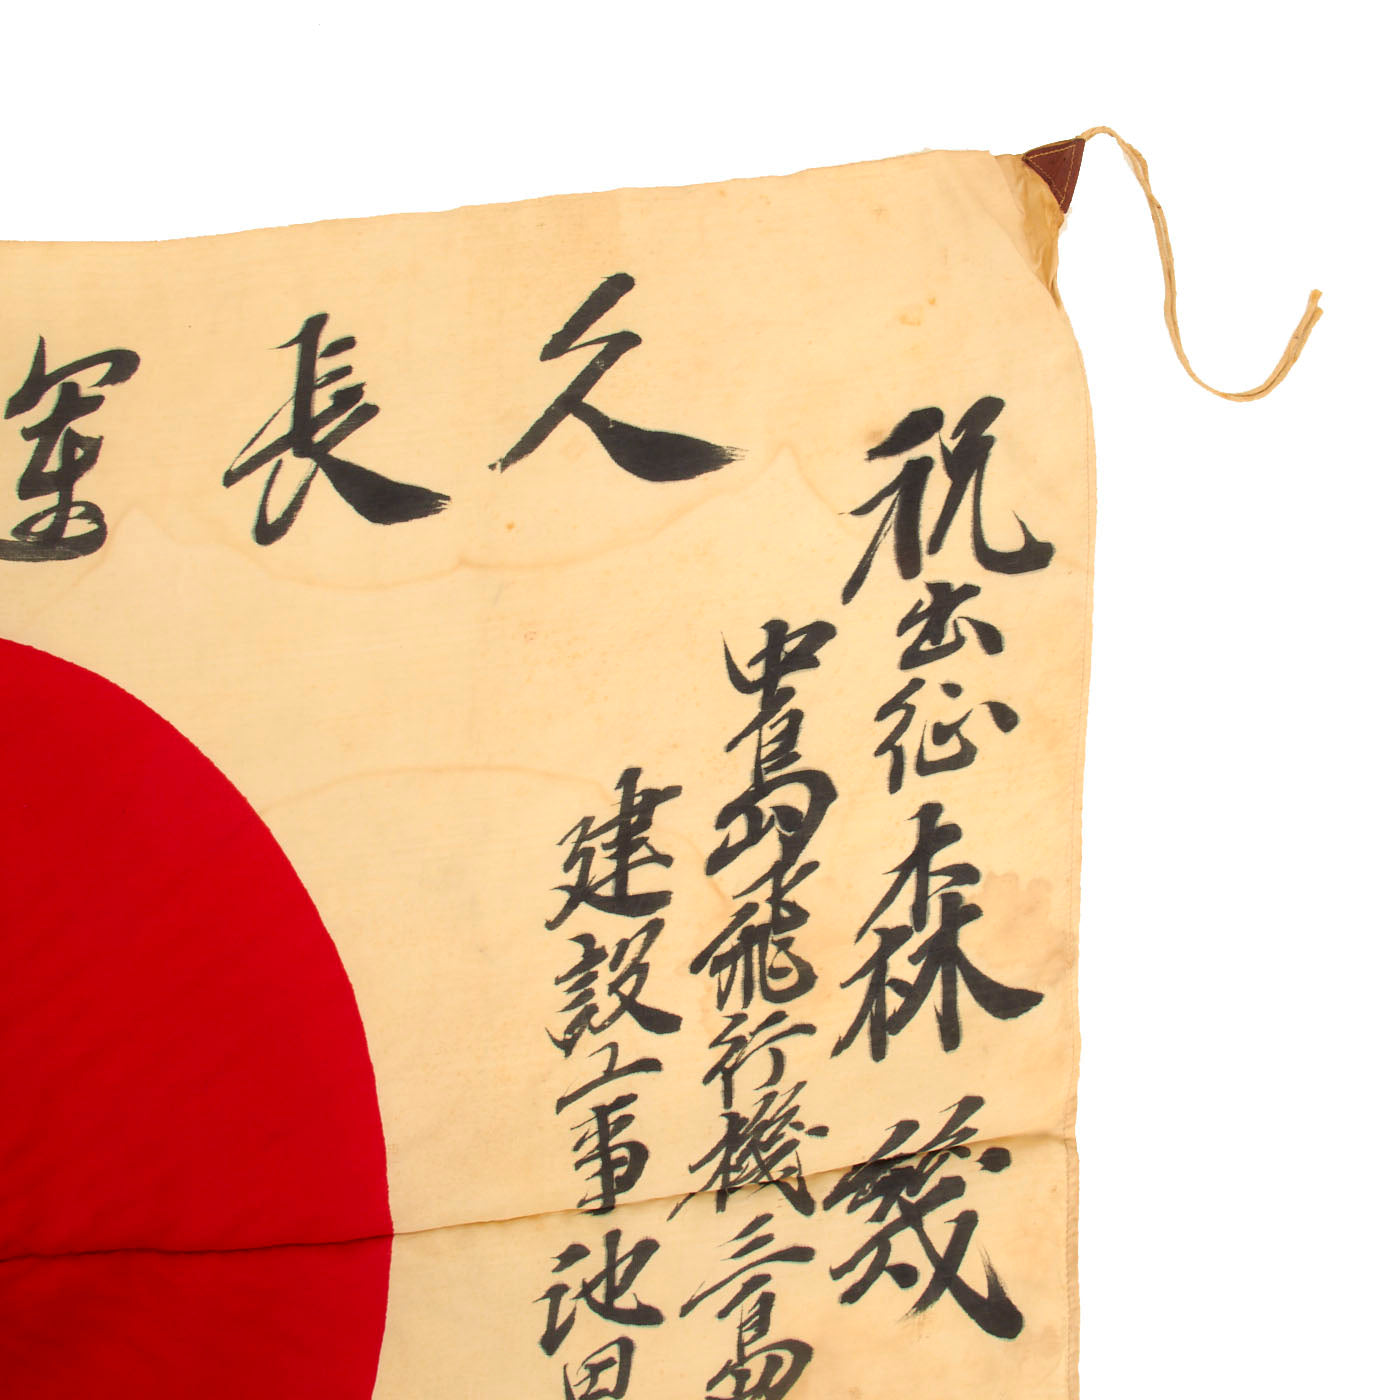 祝出征森幾
中島飛行機三島
建設工事池田
運長久